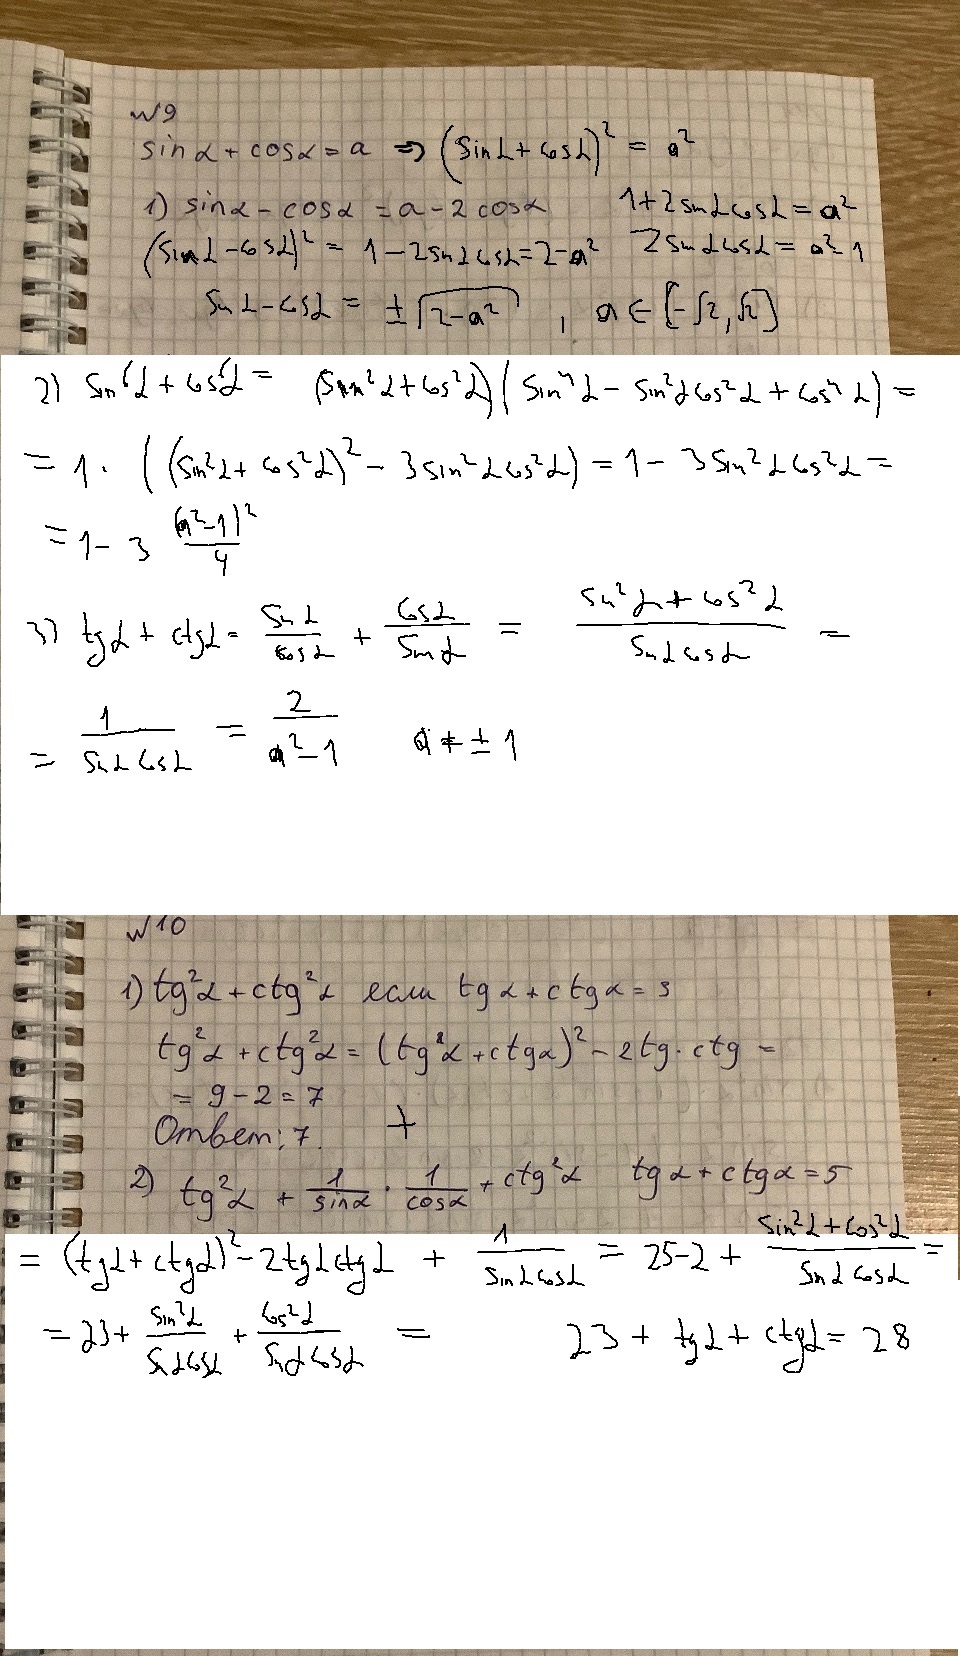 №9
sinα + cosα = a ⇒ (sinα + cosα)² = a²
1) sinα - cosα = a - 2cosα 1 + 2sinαcosα = a²
(sinα - cosα)² = 1 - 2sinαcosα = 2 - a² 2sinαcosα = a² - 1
sinα - cosα = ±√(2 - a²) , a ∈ [-√2, √2]
2) sin⁶α + cos⁶α = (sin²α + cos²α)(sin⁴α - sin²αcos²α + cos⁴α) =
= 1 · ((sin²α + cos²α)² - 3sin²αcos²α) = 1 - 3sin²αcos²α =
= 1 - 3 (a² - 1)²/4
3) tgα + ctgα = sinα/cosα + cosα/sinα = (sin²α + cos²α)/(sinαcosα) =
= 1/(sinαcosα) = 2/(a² - 1) a ≠ ±1
№10
1) tg²α + ctg²α если tgα + ctgα = 3
tg²α + ctg²α = (tg²α + ctgα)² - 2tg · ctg =
= 9 - 2 = 7
Ответ: 7. +
2) tg²α + 1/sinα · 1/cosα + ctg²α tgα + ctgα = 5
= (tgα + ctgα)² - 2tgαctgα + 1/(sinαcosα) = 25 - 2 + (sin²α + cos²α)/(sinαcosα) =
= 23 + sin²α/(sinαcosα) + cos²α/(sinαcosα) = 23 + tgα + ctgα = 28